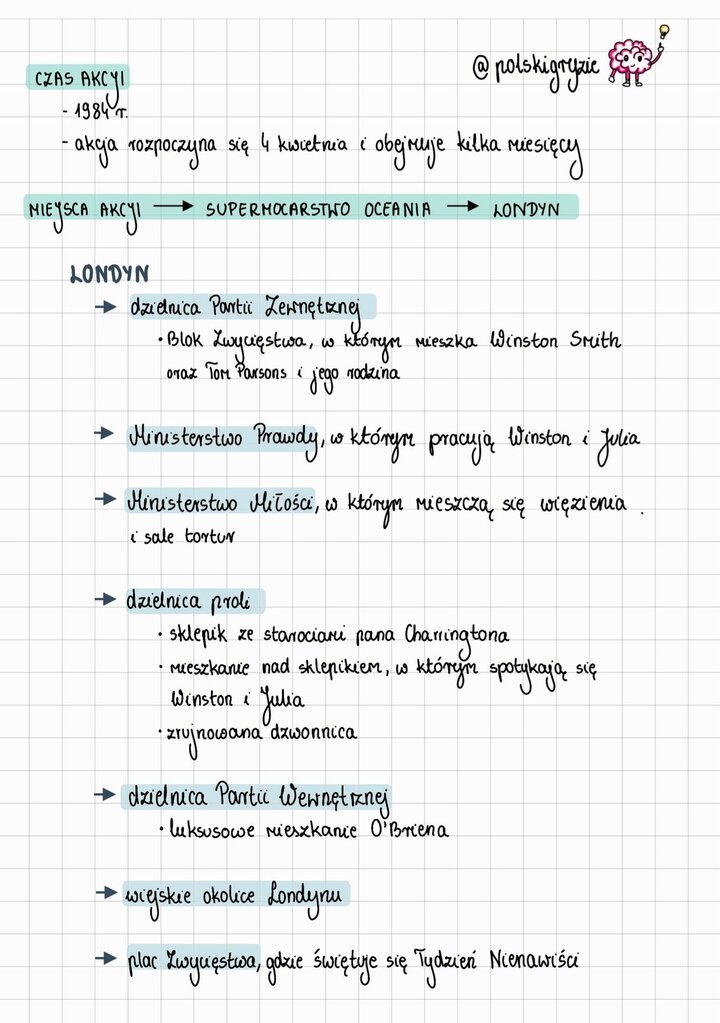 @polskigryzie
CZAS AKCJI
- 1984 r.
- akcja rozpoczyna się 4 kwietnia i obejmuje kilka miesięcy
MIEJSCA AKCJI → SUPERMOCARSTWO OCEANIA → LONDYN
LONDYN
→ dzielnica Partii Zewnętrznej
• Blok Zwycięstwa, w którym mieszka Winston Smith
oraz Tom Parsons i jego rodzina
→ Ministerstwo Prawdy, w którym pracują Winston i Julia
→ Ministerstwo Miłości, w którym mieszczą się więzienia .
i sale tortur
→ dzielnica proli
• sklepik ze starociami pana Charringtona
• mieszkanie nad sklepikiem, w którym spotykają się
Winston i Julia
• zrujnowana dzwonnica
→ dzielnica Partii Wewnętrznej
• luksusowe mieszkanie O'Briena
→ wiejskie okolice Londynu
→ plac Zwycięstwa, gdzie świętuje się Tydzień Nienawiści